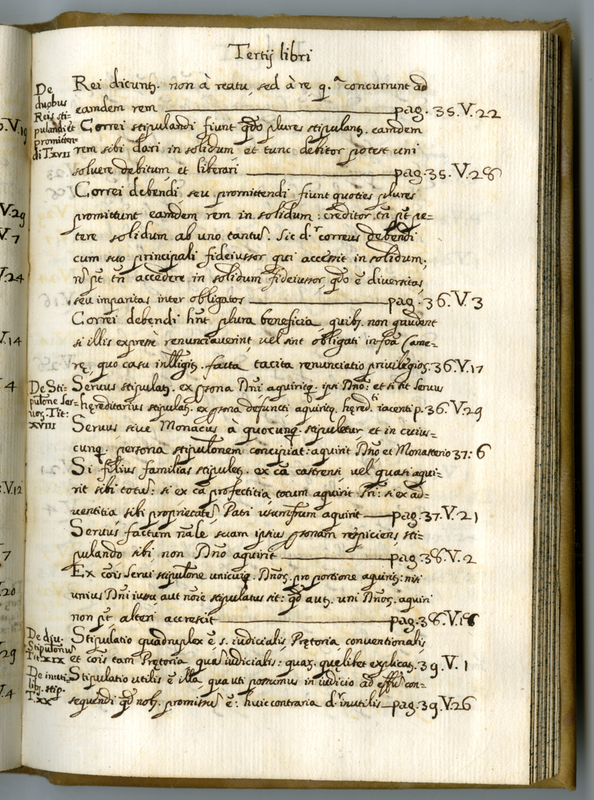 Tertij libri
De
duobus
Reis sti-
pulandi et
promitten-
di T.XVII
Rei dicuntꝫ. non à reatu sed à re q.ᵃ concurrunt ad
eamdem rem pag. 35.V.22
Correi stipulandi fiunt qdo plures stipulantꝫ. eamdem
rem sibi dari in solidum et tunc debitor potest uni
solvere debitum et liberari pag. 35.V.28
Correi debendi seu promittendi fiunt quoties plures
promittunt eamdem rem in solidum: creditor tñ pt pe-
tere solidum ab uno tantu. Sic dr correus debendi
cum suo principali fideiussor qui accessit in solidum;
pt tñ accedere in solidum fideiussor qdo ẽ diversitas
seu imparitas inter obligatos pag. 36.V.3
Correi debendi hñt plura beneficia quibꝫ. non gaudent
si illis expresè renunciaverint vel sint obligati in foa Came-
rę, quo casu inlligitꝫ. facta tacita renunciatio privilegiis. 36.V.17
De Sti-
pulone Ser-
vorꝫ. Tit:
XVIII
Servus stipulatꝫ. ex psona Dñi aquiritqꝫ. ipsi Dño: et si sit servus
hęreditarius stipulatꝫ. ex psona defuncti aquiritqꝫ. hęredti iacenti p. 36.V.29
Servus sive Monacus a quocunqꝫ. stipuletur et in cuius-
cunqꝫ. persona stipulonem concipiat: aquirit Dño et Monasterio 37: 6
Si filius familias stipuletꝫ. ex cã castrensi vel quasi aqui-
rit sibi totuꝫ: si ex cã profectitia totum aquirit Pri: si ex ad-
ventitia sibi proprietateꝫ. Patri usumfrum aquirit pag. 37.V.21
Servus factum nãle suam ipsius psonam respiciens sti-
pulando sibi non Dño aquirit pag. 38.V.2
Ex cõis servi stipulone unicuiqꝫ. Dños. pro portione aquiritꝫ: nisi
unius Dñi iussu aut noĩe stipulatus sit: qd autꝫ. uni Dños. aquiri
non pt alteri accrescit pag. 38.V.18
De divi.
Stipulonuꝫ
Tit. XIX
Stipulatio quadruplex ẽ s. iudicialis Pretoria conventionalis
et cõis tam Pretoria quaꝫ iudicialis: quaꝫ. quęlibet explicatꝫ. 39.V. 1
De inuti-
libꝫ. stip.
T. XX
Stipulatio utilis ẽ illa qua uti possumus in iudicio ad effũ con-
sequendi qd nobꝫ. promissuꝫ ẽ: huic contraria dr inutilis pag. 39.V.26